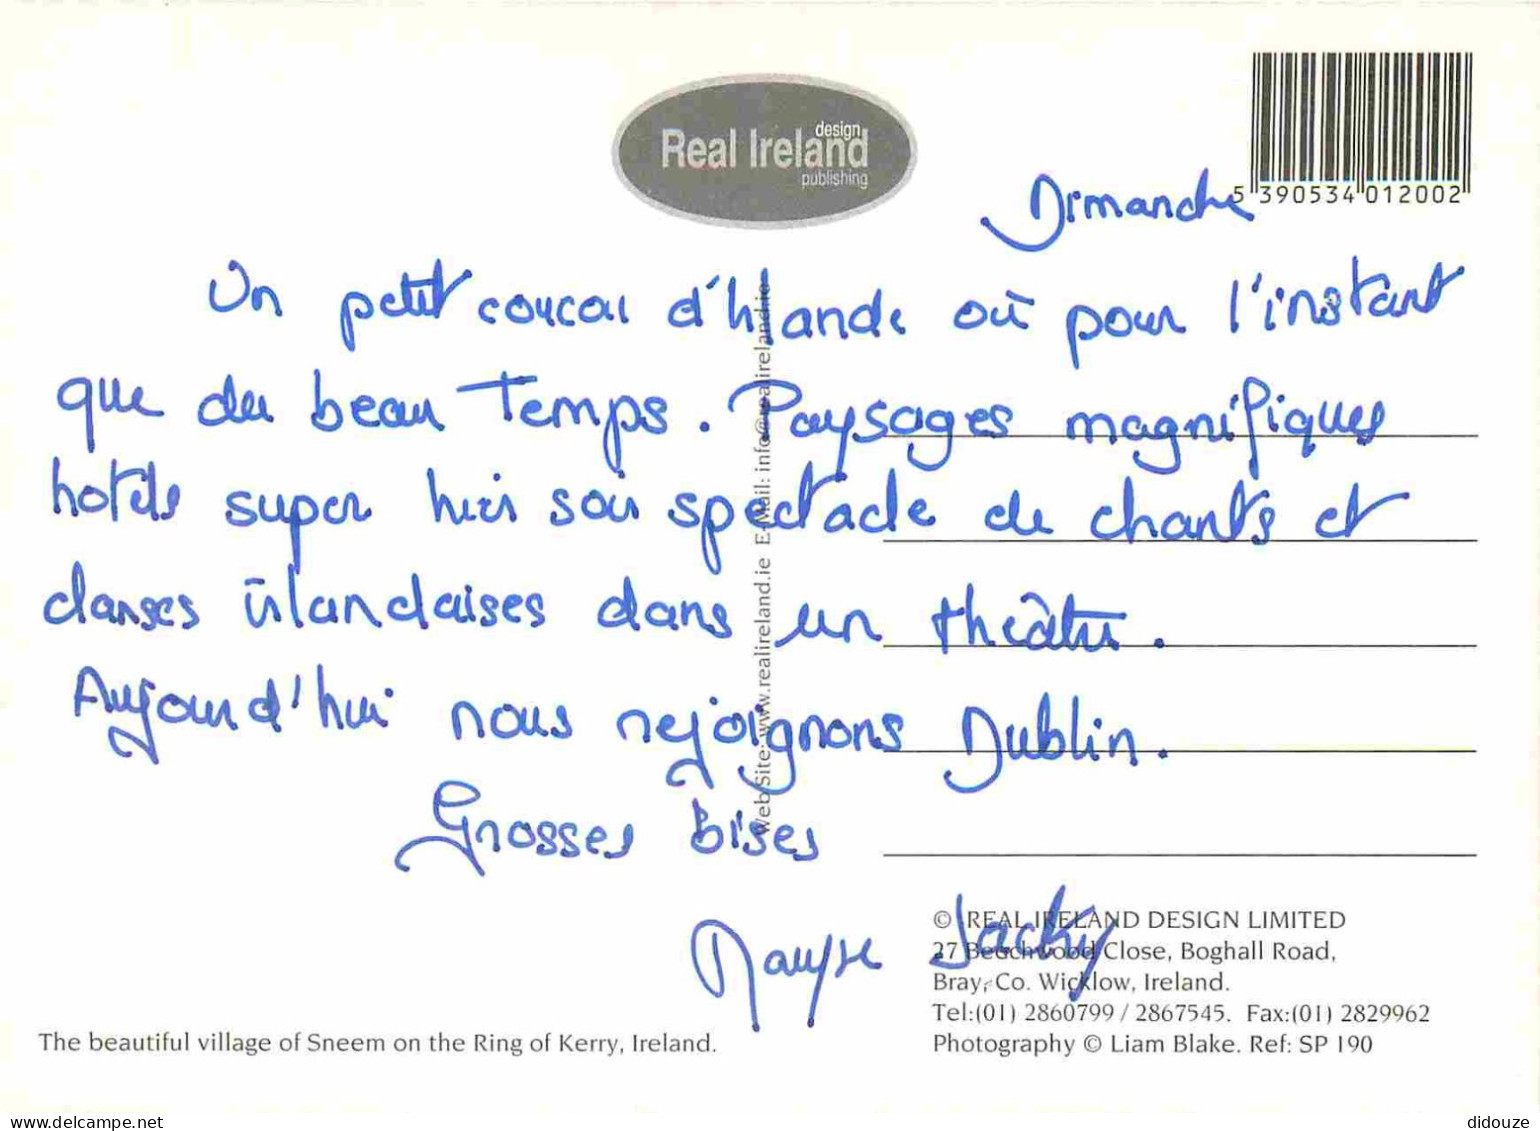 Real Ireland
design
publishing
5 390534 012002
Dimanche
Un petit coucou d'Irlande où pour l'instant
que du beau Temps. Paysages magnifiques
hotels super hier soir spectacle de chants et
danses irlandaises dans un théâtre.
Aujourd'hui nous rejoignons Dublin.
Grosses bises
Jacky
Web Site: www.realireland.ie E-Mail: info@realireland.ie
© REAL IRELAND DESIGN LIMITED
27 Beechwood Close, Boghall Road,
Bray, Co. Wicklow, Ireland.
Tel:(01) 2860799 / 2867545. Fax:(01) 2829962
Photography © Liam Blake. Ref: SP 190
The beautiful village of Sneem on the Ring of Kerry, Ireland.
www.delcampe.net
didouze